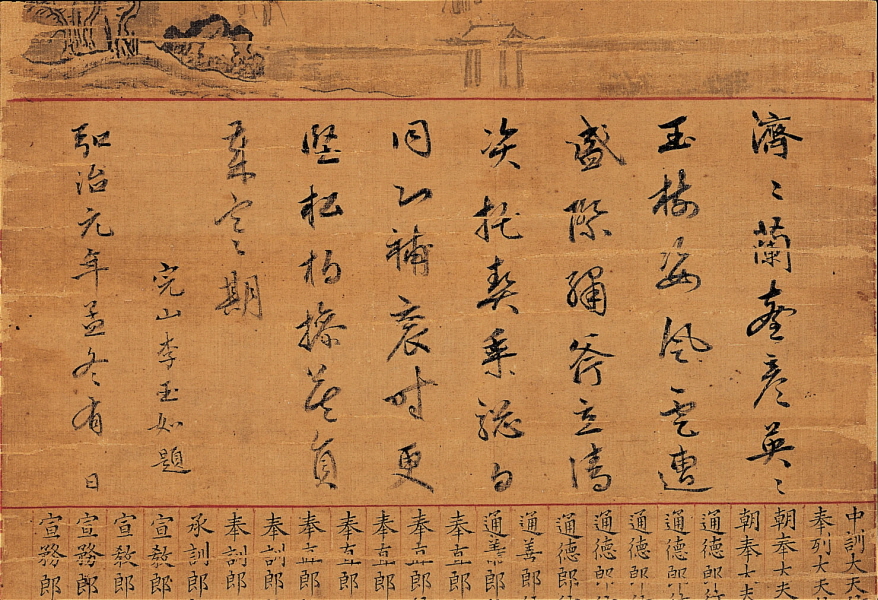 濟〻蘭臺彥英〻
玉樹姿風雲遭
盛際繡斧立清
資托契乘驄日
同心補袞時更
堅松柏操莫負
歲寒期
完山李玉如題
弘治元年孟冬有日
中訓大夫
奉列大夫
朝奉大夫
朝奉大夫
通德郎行
通德郎行
通德郎
通德郎
通德郎
通善郎
通善郎
奉直郎
奉直郎
奉直郎
奉直郎
奉直郎
奉訓郎
奉訓郎
承訓郎
宣教郎
宣教郎
宣務郎
宣務郎